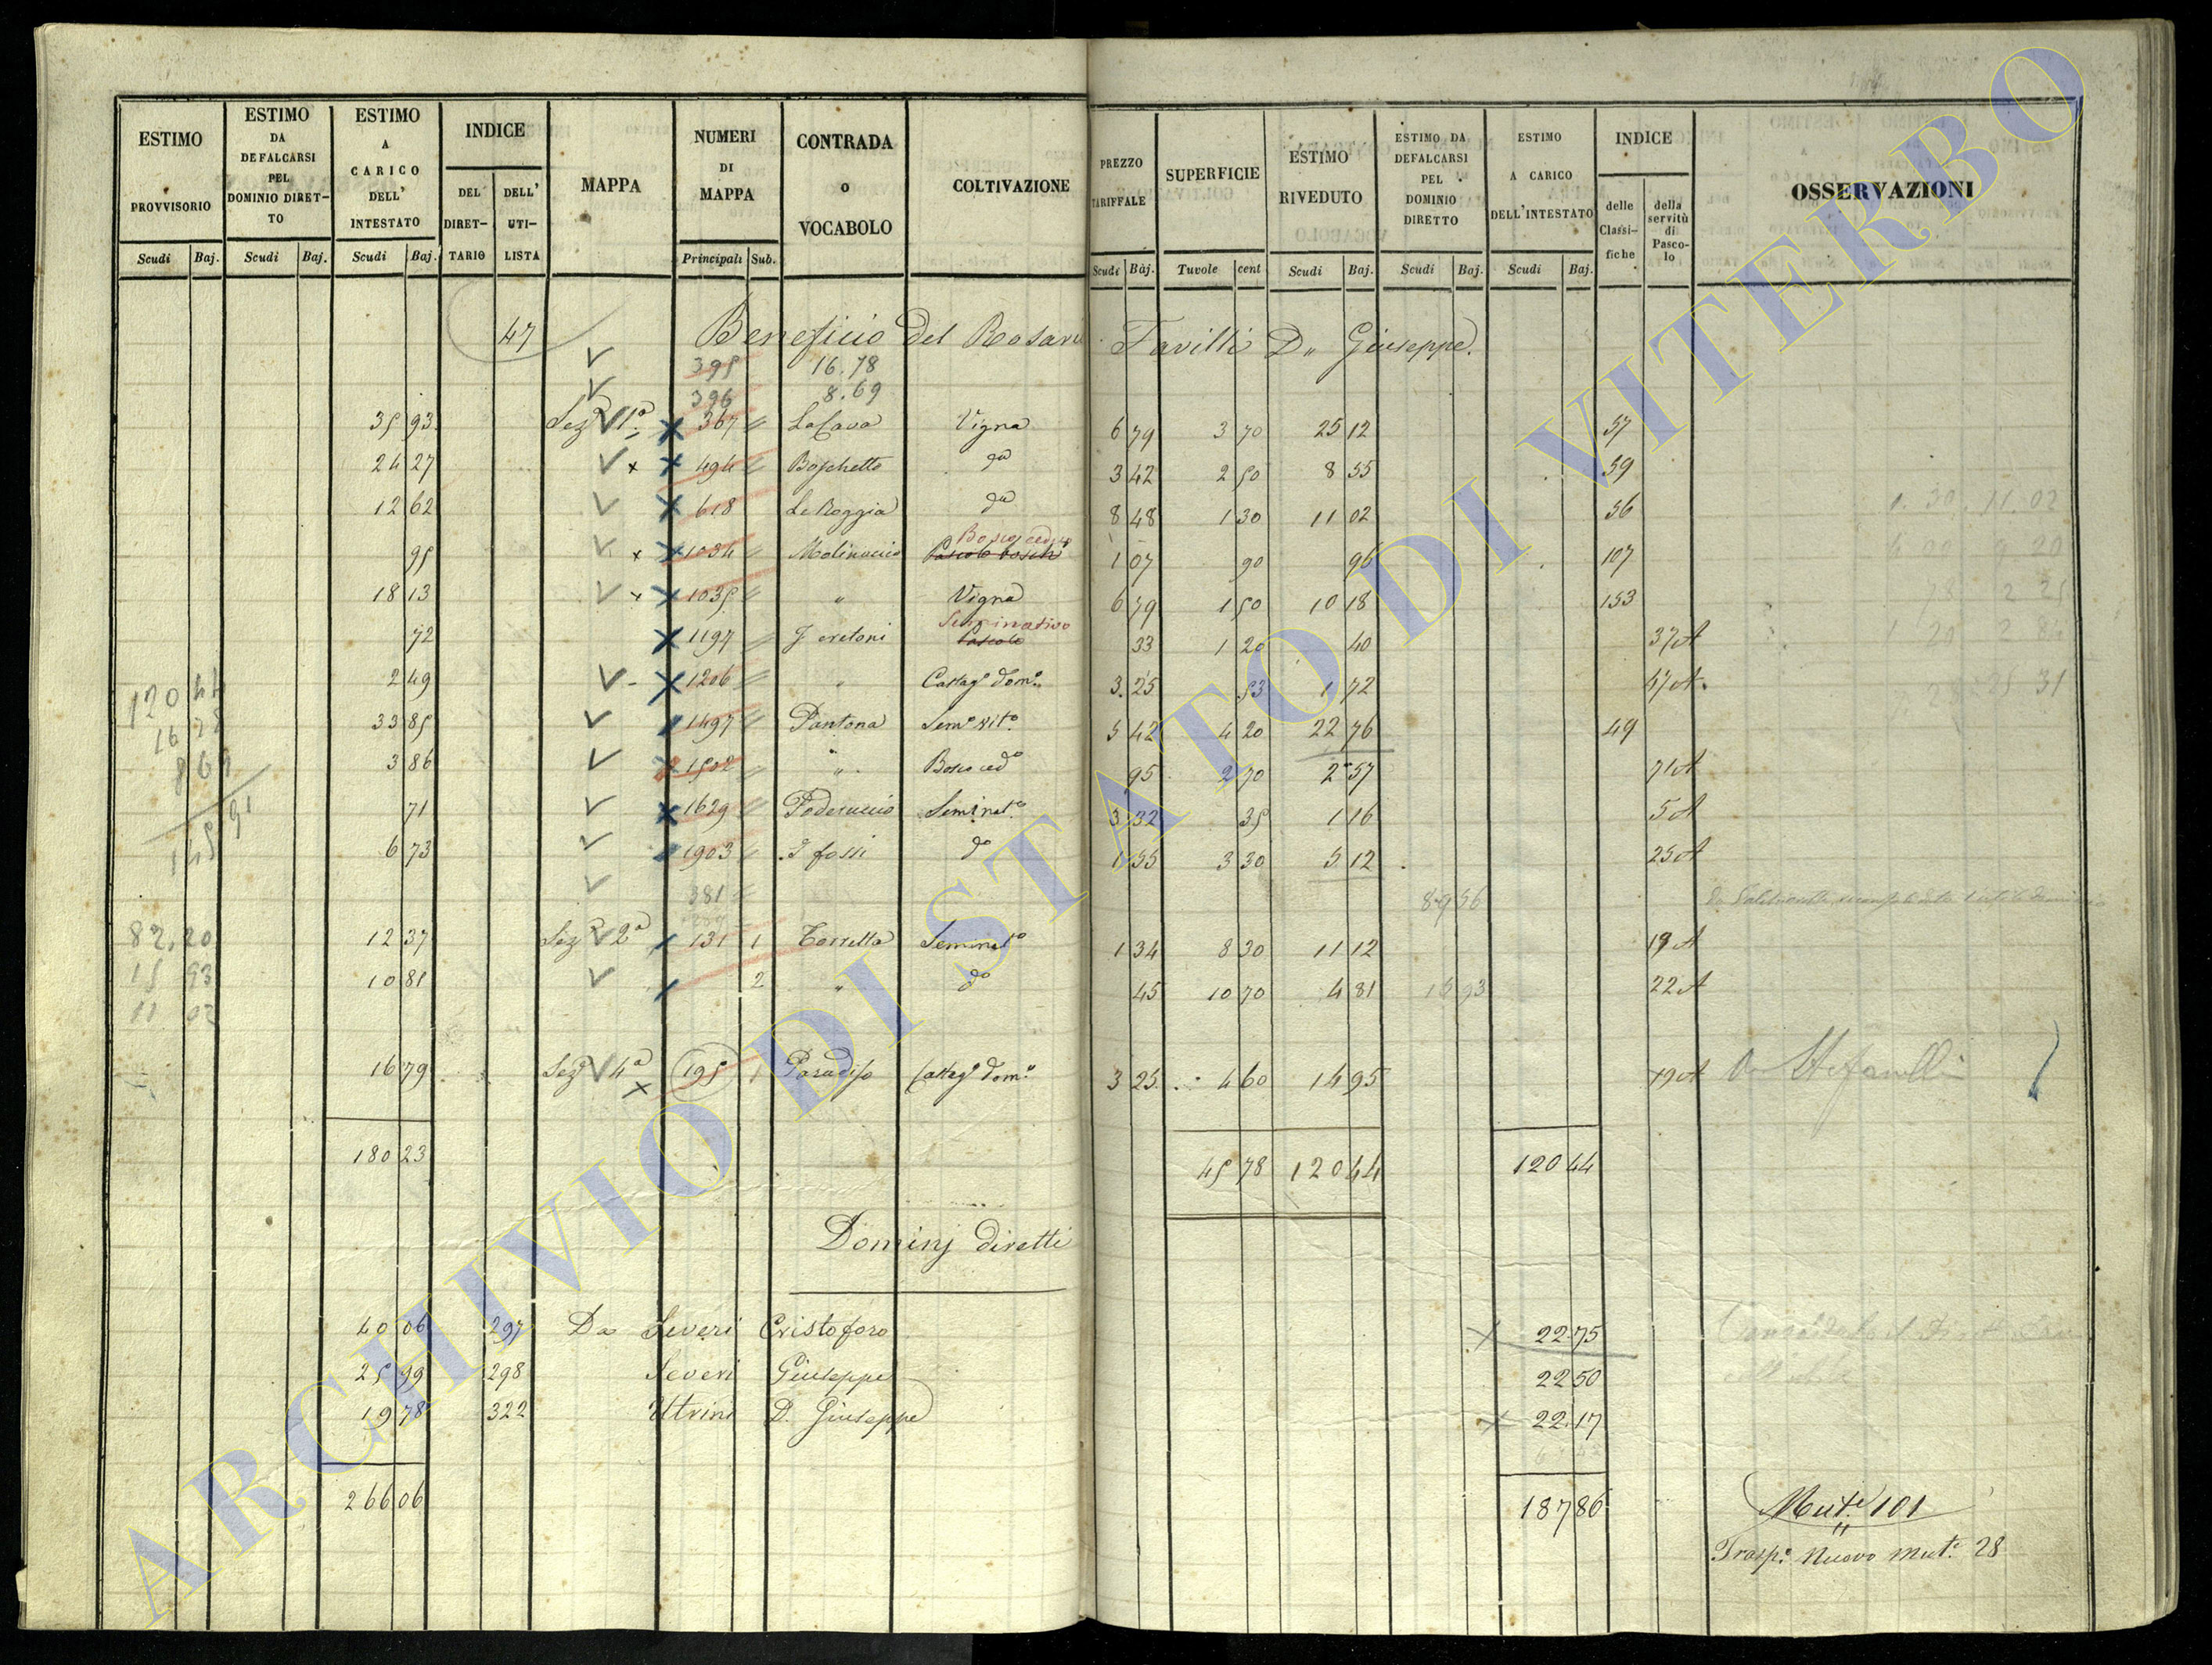 ESTIMO PROVVISORIO Scudi Baj.
ESTIMO DA DEFALCARSI PEL DOMINIO DIRET-TO Scudi Baj.
ESTIMO A CARICO DELL' INTESTATO Scudi Baj.
INDICE DEL DIRET-TARIO DELL' UTI-LISTA
MAPPA
NUMERI DI MAPPA Principali Sub.
CONTRADA o VOCABOLO
COLTIVAZIONE
PREZZO TARIFFALE Scudi Baj.
SUPERFICIE Tavole cent
ESTIMO RIVEDUTO Scudi Baj.
ESTIMO DA DEFALCARSI PEL DOMINIO DIRETTO Scudi Baj.
ESTIMO A CARICO DELL'INTESTATO Scudi Baj.
INDICE delle Classi-fiche della servitù di Pasco-lo
OSSERVAZIONI
47 Beneficio del Rosario Favilli D. Giuseppe.
395 16.78
396 8.69
35 93 Sez.e 1a 367 La Cava Vigna 6 79 3 70 25 12 57
24 27 494 Boschetto da 3 42 2 50 8 55 59
12 62 618 Le Roggia da 8 48 1 30 11 02 56
95 1034 Molinaccio Bosco ceduo 1 07 90 96 107
18 13 1035 " Vigna 6 79 1 50 10 18 153
72 1197 Seminativo Pascolo 33 1 20 40 37A
2 49 1206 " Castag.o dom.o 3 25 53 1 72 47A
33 85 1497 Pantana Sem.o vit.o 5 42 4 20 22 76 49
3 86 1502 " Bosco ced.o 95 2 70 2 57 71A
71 1629 Poderuccio Seminat.o 3 32 35 1 16 5A
6 73 1903 I fossi do 1 55 3 30 5 12 25A
381
89 56
12 37 Sez.e 2a 131 1 Torretta Seminat.o 1 34 8 30 11 12 19A
10 81 2 " do 45 10 70 4 81 15 93 22A
16 79 Sez.e 4a 195 1 Paradiso Castag.o dom.o 3 25 4 60 14 95 19A
180 23 45 78 120 44 120 44
120 44
16 78
8 69
145 91
82.20
15 93
11 02
Dominj diretti
40 06 297 Da Severi Cristoforo 22 75
25 99 298 Severi Giuseppe 22 50
19 78 322 Utrini D. Giuseppe 22 17
266 06 187 86
Mut.e 101
Trasp.o Nuovo Mut.e 28
ARCHIVIO DI STATO DI VITERBO